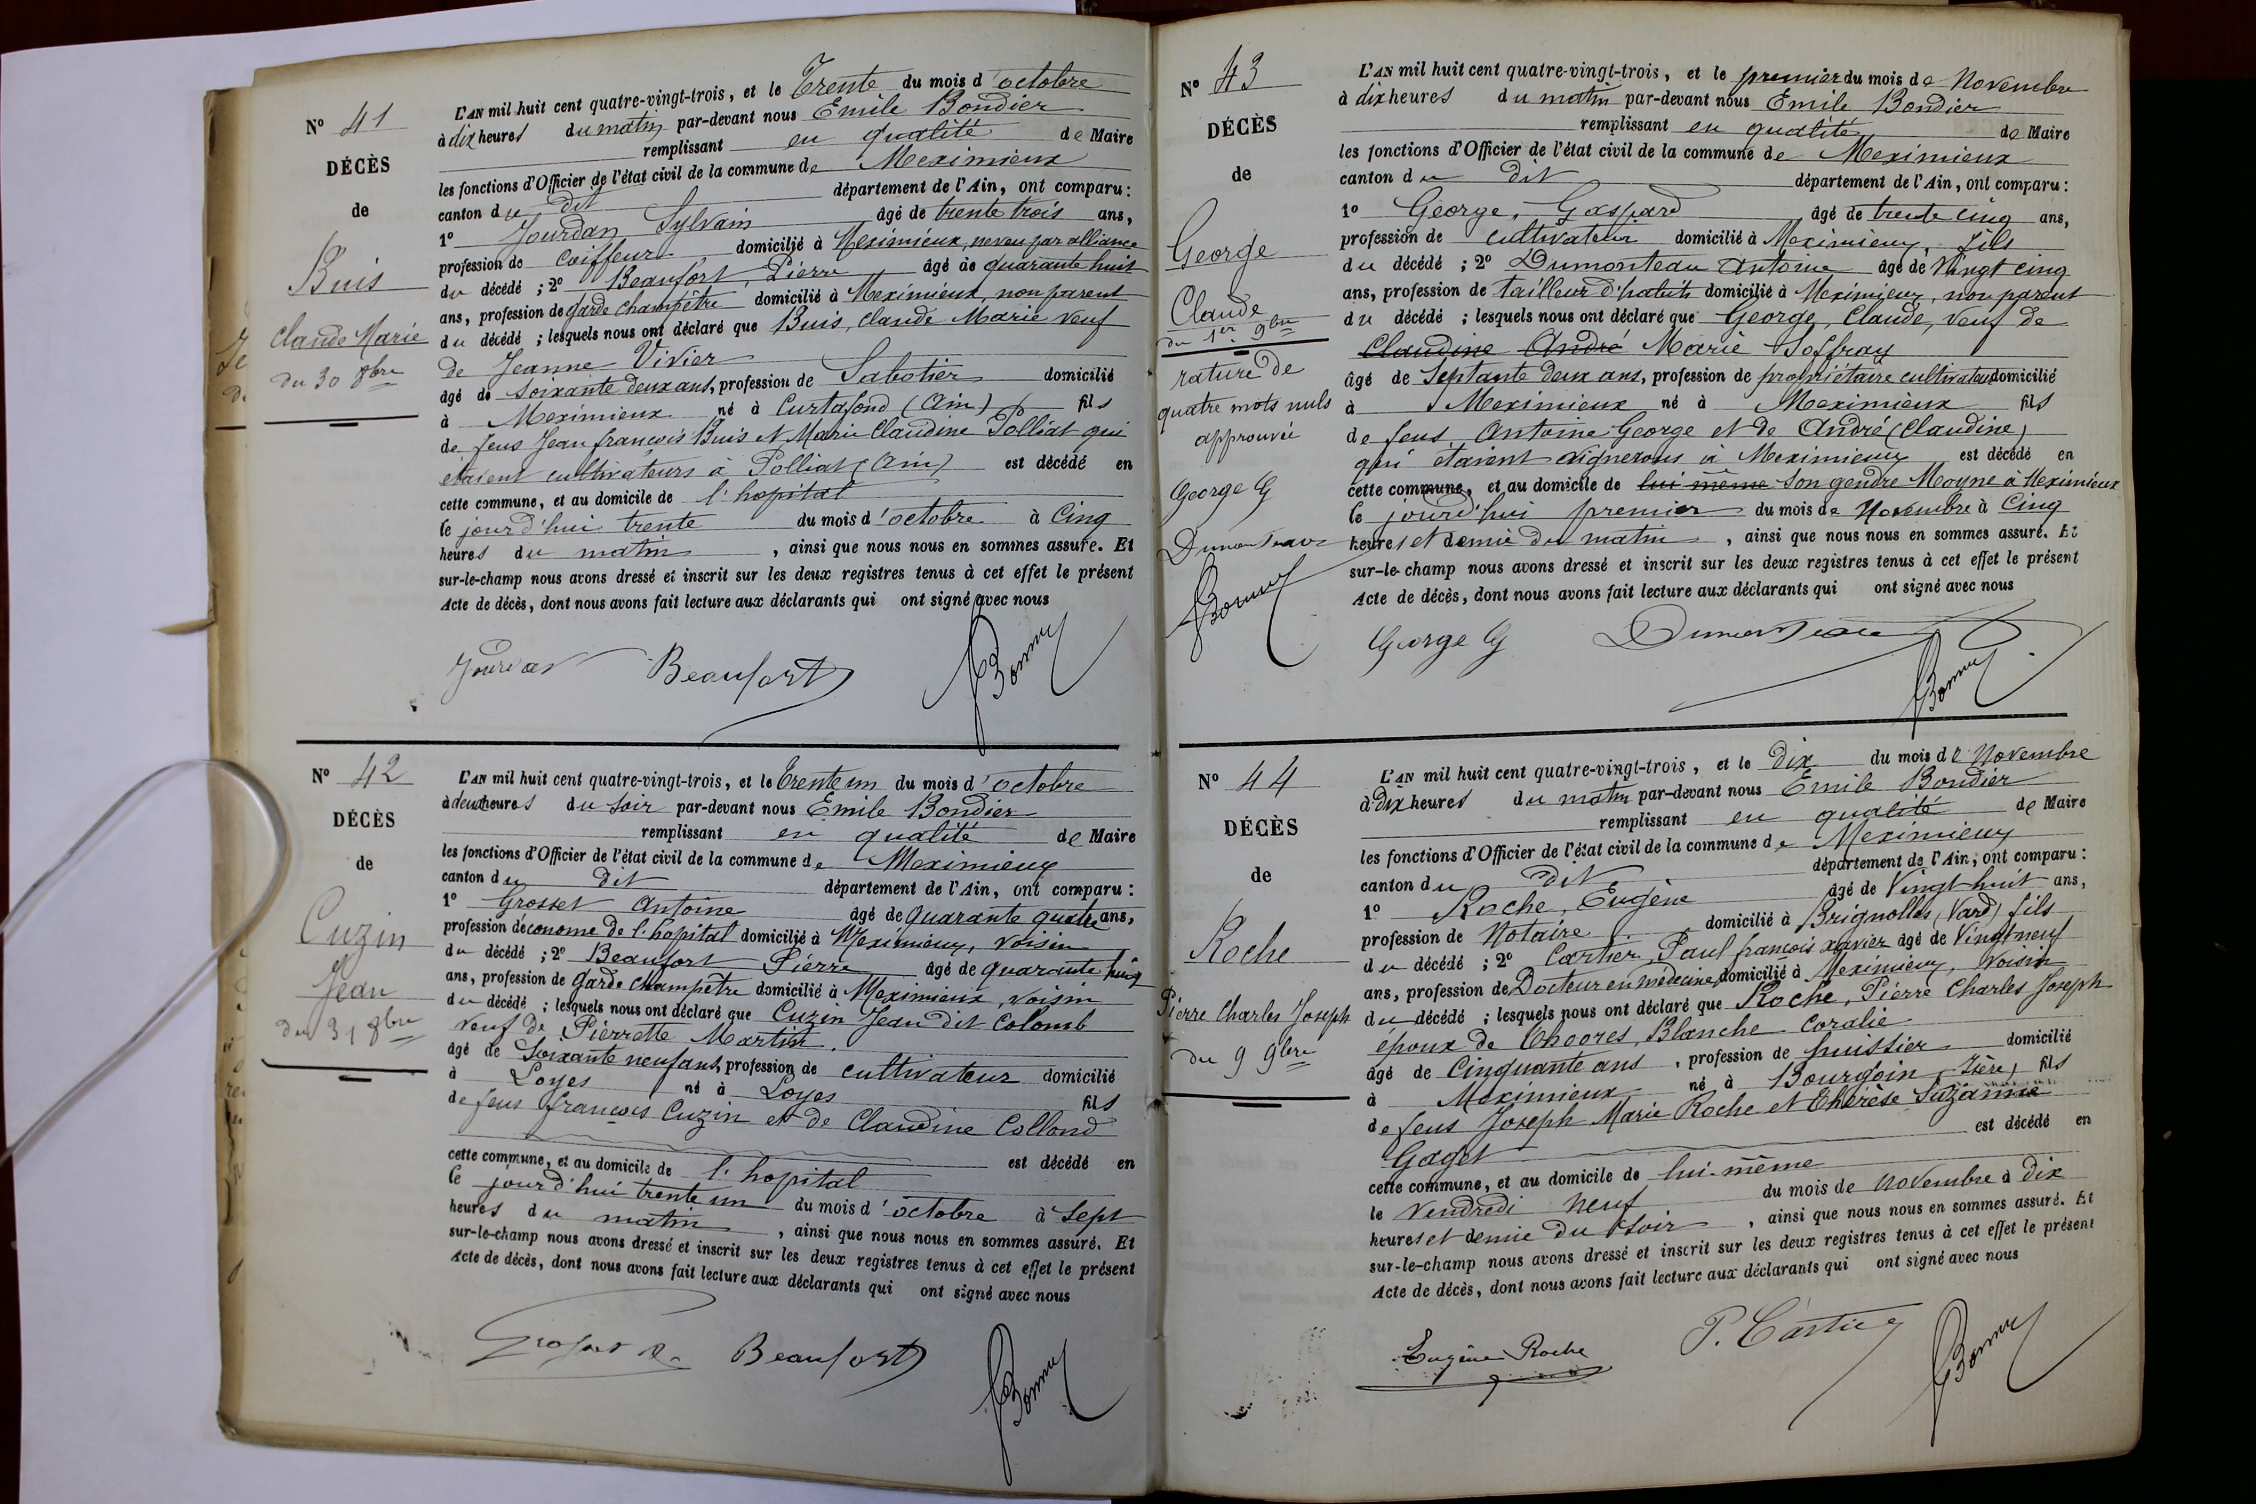 Nº 41
DÉCÈS
de
Buis
Claude Marie
du 30 8bre
L'AN mil huit cent quatre-vingt-trois, et le Trente du mois d'octobre
à dix heures du matin par-devant nous Emile Bondier
remplissant en qualité de Maire
les fonctions d'Officier de l'état civil de la commune de Meximieux
canton du dit département de l'Ain, ont comparu :
1º Jourdan Sylvain âgé de trente trois ans,
profession de Coiffeur domicilié à Meximieux, neveu par alliance
du décédé ; 2º Beaufort, Pierre âgé de quarante huit
ans, profession de garde champêtre domicilié à Meximieux, non parent
du décédé ; lesquels nous ont déclaré que Buis, Claude Marie veuf
de Jeanne Vivier
âgé de soixante deux ans, profession de Sabotier domicilié
à Meximieux né à Curtafond (Ain) fils
de feus Jean françois Buis et Marie Claudine Polliat qui
étaient cultivateurs à Polliat (Ain) est décédé en
cette commune, et au domicile de l'hopital
le jourd'hui trente du mois d'octobre à Cinq
heures du matin, ainsi que nous nous en sommes assuré. Et
sur-le-champ nous avons dressé et inscrit sur les deux registres tenus à cet effet le présent
Acte de décès, dont nous avons fait lecture aux déclarants qui ont signé avec nous
Jourdan Beaufort
Nº 42
DÉCÈS
de
Cuzin
Jean
du 31 8bre
L'AN mil huit cent quatre-vingt-trois, et le Trente un du mois d'octobre
à deux heures du soir par-devant nous Emile Bondier
remplissant en qualité de Maire
les fonctions d'Officier de l'état civil de la commune de Meximieux
canton du dit département de l'Ain, ont comparu :
1º Grosset Antoine âgé de quarante quatre ans,
profession d'économe de l'hopital domicilié à Meximieux, voisin
du décédé ; 2º Beaufort Pierre âgé de quarante huit
ans, profession de garde champêtre domicilié à Meximieux, voisin
du décédé ; lesquels nous ont déclaré que Cuzin Jean dit Colomb
veuf de Pierrette Martin.
âgé de Soixante neuf ans, profession de cultivateur domicilié
à Loyes né à Loyes fils
de feus françois Cuzin et de Claudine Collond
est décédé en
cette commune, et au domicile de l'hopital
le jourd'hui trente un du mois d'octobre à Sept
heures du matin, ainsi que nous nous en sommes assuré. Et
sur-le-champ nous avons dressé et inscrit sur les deux registres tenus à cet effet le présent
Acte de décès, dont nous avons fait lecture aux déclarants qui ont signé avec nous
Beaufort
Nº 43
DÉCÈS
de
George
Claude
du 1er 9bre
rature de
quatre mots nuls
approuvée
George G
Dumonteau
L'AN mil huit cent quatre-vingt-trois, et le premier du mois de Novembre
à dix heures du matin par-devant nous Emile Bondier
remplissant en qualité de Maire
les fonctions d'Officier de l'état civil de la commune de Meximieux
canton du dit département de l'Ain, ont comparu :
1º George, Gaspard âgé de trente cinq ans,
profession de cultivateur domicilié à Meximieux, fils
du décédé ; 2º Dumonteau Antoine âgé de Vingt cinq
ans, profession de tailleur d'habits domicilié à Meximieux, non parent
du décédé ; lesquels nous ont déclaré que George, Claude, veuf de
Claudine André Marie Soffray
âgé de Septante deux ans, profession de propriétaire cultivateur domicilié
à Meximieux né à Meximieux fils
de feus Antoine George et de André (Claudine)
qui étaient vignerons à Meximieux est décédé en
cette commune, et au domicile de lui même Son gendre Moyne à Meximieux
le jourd'hui premier du mois de Novembre à Cinq
heures et demie du matin, ainsi que nous nous en sommes assuré. Et
sur-le-champ nous avons dressé et inscrit sur les deux registres tenus à cet effet le présent
Acte de décès, dont nous avons fait lecture aux déclarants qui ont signé avec nous
George G Dumonteau
Nº 44
DÉCÈS
de
Roche
Pierre Charles Joseph
du 9 9bre
L'AN mil huit cent quatre-vingt-trois, et le dix du mois de Novembre
à Dix heures du matin par-devant nous Emile Bondier
remplissant en qualité de Maire
les fonctions d'Officier de l'état civil de la commune de Meximieux
canton du dit département de l'Ain, ont comparu :
1º Roche, Eugène âgé de Vingt huit ans,
profession de Notaire domicilié à Brignolles (Vard) fils
du décédé ; 2º Cartier, Paul françois xavier âgé de Vingt neuf
ans, profession de Docteur en médecine, domicilié à Meximieux, voisin
du décédé ; lesquels nous ont déclaré que Roche, Pierre Charles Joseph
époux de Blanche Coralie
âgé de Cinquante ans, profession de huissier domicilié
à Meximieux né à Bourgoin (Isère) fils
de feus Joseph Marie Roche et Thérèse Suzanne
Gaget est décédé en
cette commune, et au domicile de lui-même
le Vendredi neuf du mois de Novembre à dix
heures et demie du Soir, ainsi que nous nous en sommes assuré. Et
sur-le-champ nous avons dressé et inscrit sur les deux registres tenus à cet effet le présent
Acte de décès, dont nous avons fait lecture aux déclarants qui ont signé avec nous
Eugène Roche P. Cartier